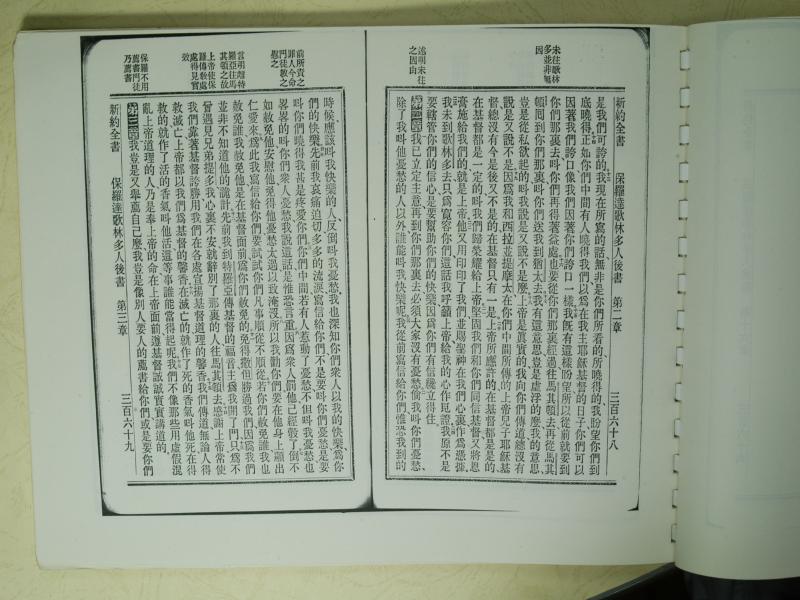 新約全書　保羅達歌林多人後書　第二章　三百六十八
未往歌林
多並非無
因
述明未往
之因由
是我們可誇的我現在所寫的話無非是你們所看的所曉得的我盼望你們到
底曉得正如你們中間有人曉得我們以為在我主耶穌基督的日子你們可以
因著我們誇口像我們因著你們誇口一樣我旣有這樣盼望所以從前就要到
你們那裏去呌你們再得著益處也要從你們那裏經過往馬其頓去再從馬其
頓囘到你們那裏呌你們送我到猶太去我有這意思豈是虛浮的麼我的意思
豈是從私欲起的呌我說是又說不是麼上帝是眞實的我向你們傳道總沒有
說是又說不是因為我和西拉並提摩太在你們中間所傳的上帝兒子耶穌基
督總沒有今是後又不是的在基督只有一是上帝所應許的在基督都是是的
在基督都是一定的呌我們歸榮耀給上帝堅固我們和你們同信基督又將恩
膏施給我們的就是上帝他又用印印了我們並賜聖神在我們心裏作為憑據
我未到歌林多去只為寬容你們這話我呼籲上帝給我的心作見證我原不是
要轄管你們的信心是要幫助你們的快樂因為你們有信纔立得住
第二章我已立定主意再到你們那裏去必須大家沒有憂愁倘我呌你們憂愁
除了我呌他憂愁的人以外誰能呌我快樂呢我從前寫信給你們惟恐我到的
前所責之
罪人今命
門徒敎之
慰之
言明離特
羅亞往馬
其頓之故
上帝使保
羅傳敎處
處得見實
效
保羅不用
薦書門徒
乃薦書
時候應該呌我快樂的人反倒呌我憂愁我也深知你們衆人以我的快樂為你
們的快樂先前我哀痛迫切多多的流淚寫信給你們不是要呌你們憂愁是要
呌你們曉得我甚是疼愛你們你們中間若有人惹動了憂愁不但呌我憂愁也
畧畧的呌你們衆人憂愁我說這話是惟恐言重因為衆人罰他已經彀了倒不
如赦免他安慰他免得他憂愁太過以致淹沒所以我勸你們要在他身上顯出
仁愛來為此我寫信給你們要試試你們凡事順從不順從若你們赦免誰我也
赦免誰我赦免他是在基督面前為你們赦免的免得撒但勝過我們因為我們
並非不知道他的詭計先前我到特羅亞傳基督的福音主為我開了門只為不
曾遇見兄弟提多我心裏不安就辭別了那裏的人往馬其頓去感謝上帝常使
我們靠著基督誇勝用我們在各處宣揚基督道理的馨香我們傳道無論人得
救滅亡上帝都以我們為基督的馨香在滅亡的就作了死的香氣呌他死在得
救的就作了活的香氣呌他活這等事誰能當得起呢我們不像那些用虛假混
亂上帝道理的人乃是奉上帝的命在上帝面前遵基督誠誠實實講道的
第三章我豈是又舉薦自己麼我豈是像別人要人的薦書給你們或是要你們
新約全書　保羅達歌林多人後書　第三章　三百六十九